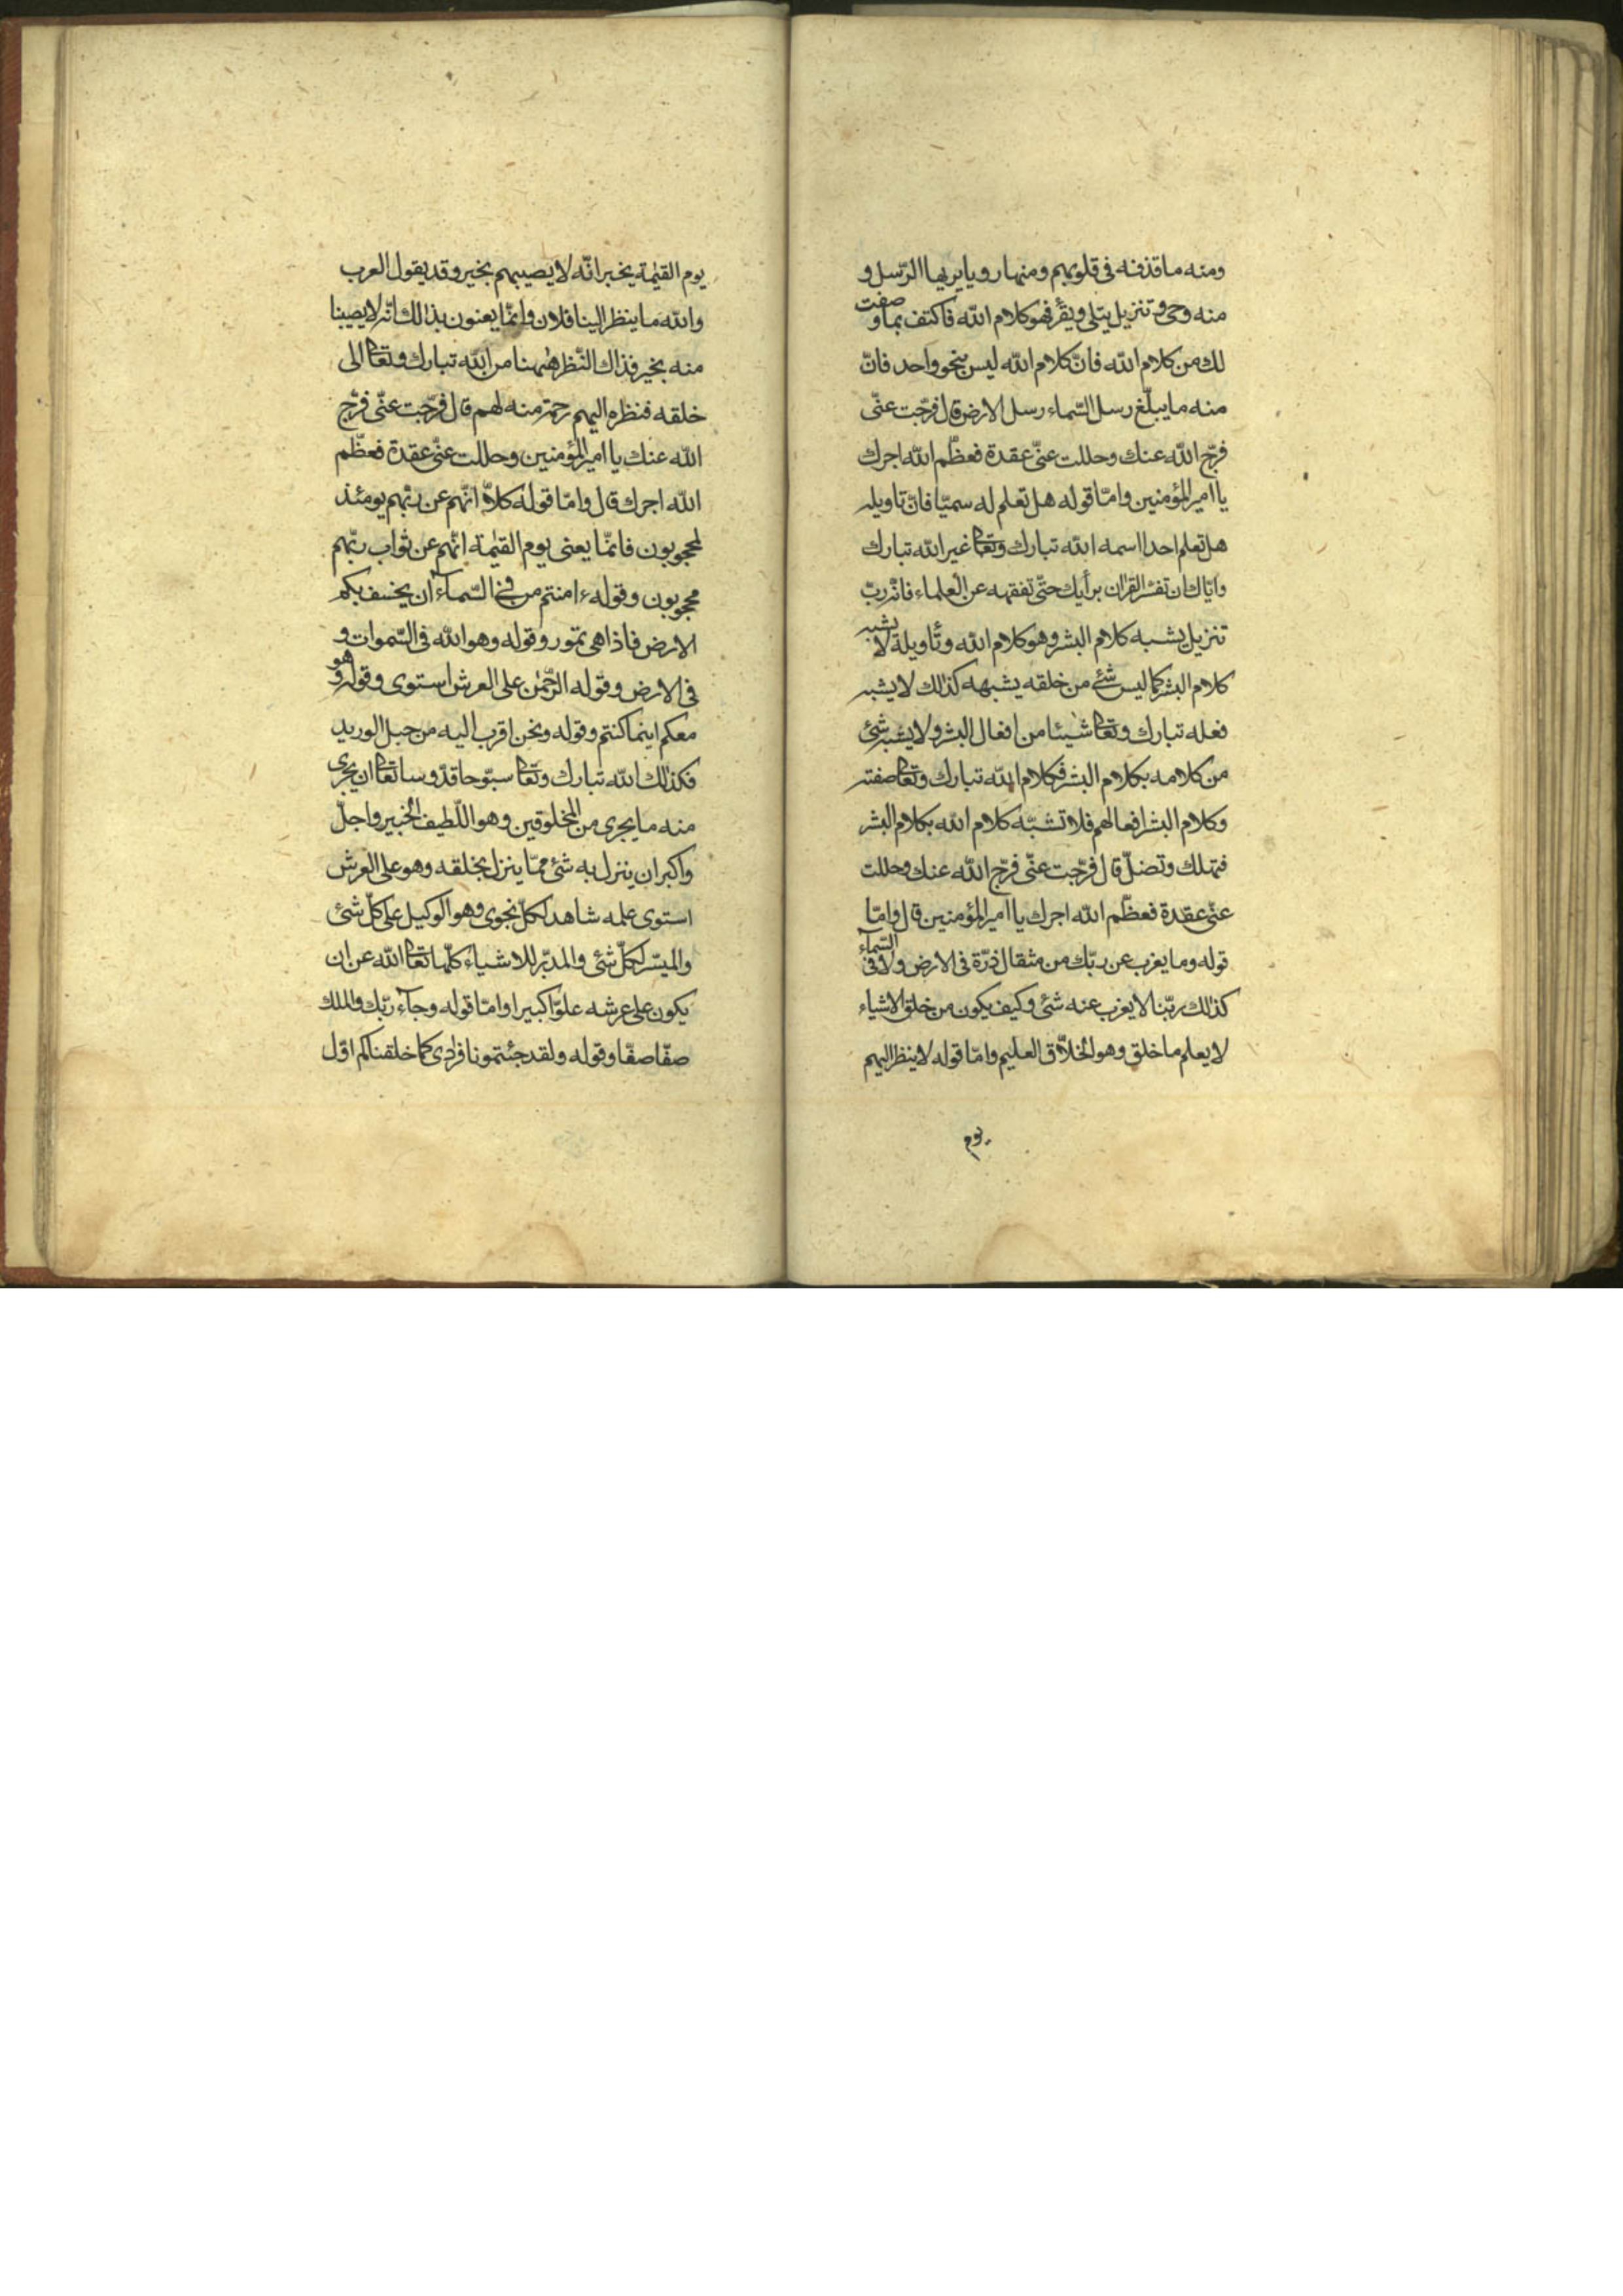 ومنه ما قذفه فى قلوبهم ومنها رويا يريها الرّسل و
منه وحى وتنزيل يتلى ويقرأ فهو كلام الله فاكتف بما وصفت
لك من كلام الله فانّ كلام الله ليس بنحو واحد فانّ
منه ما يبلّغ رسل السّماء رسل الارض قال فرّجت عنّى
فرّج الله عنك وحللت عنّى عقدة فعظّم الله اجرك
يا امير المؤمنين وامّا قوله هل تعلم له سميّا فانّ تاويله
هل تعلم احدا اسمه الله تبارك وتعا غير الله تبارك
وايّاك ان تفسّر القران برأيك حتّى تفقهه عن العلماء فانّه ربّ
تنزيل يشبه كلام البشر وهو كلام الله وتأويله لا يشبه
كلام البشر كما ليس شئ من خلقه يشبهه كذلك لا يشبه
فعله تبارك وتعا شيئا من افعال البشر ولا يشبه شئ
من كلامه بكلام البشر فكلام الله تبارك وتعا صفته
وكلام البشر افعالهم فلا تشبّه كلام الله بكلام البشر
فتهلك وتضلّ قال فرّجت عنّى فرّج الله عنك وحللت
عنّى عقدة فعظّم الله اجرك يا امير المؤمنين قال وامّا
قوله وما يعزب عن ربّك من مثقال ذرّة فى الارض ولا فى السّمآء
كذلك ربّنا لا يعزب عنه شئ وكيف يكون من خلق الاشياء
لا يعلم ما خلق وهو الخلاّق العليم وامّا قوله لا ينظر اليهم
يوم
يوم القيٰمة يخبر انّه لا يصيبهم بخير وقد يقول العرب
والله ما ينظر الينا فلان وانّما يعنون بذالك انّه لا يصيبنا
منه بخير فذاك النّظر هٰهنا من الله تبارك وتعا الى
خلقه فنظره اليهم رحمة منه لهم قال فرّجت عنّى فرّج
الله عنك يا امير المؤمنين وحللت عنّى عقدة فعظّم
الله اجرك قال وامّا قوله كلاّ انّهم عن ربّهم يومئذ
لمحجوبون فانّما يعنى يوم القيٰمة انّهم عن ثواب ربّهم
محجوبون وقوله ءامنتم من فى السّمآء ان يخسف بكم
الارض فاذا هى تمور وقوله وهو الله فى السّموات و
فى الارض وقوله الرّحمٰن على العرش استوى وقوله وهو
معكم اينما كنتم وقوله ونحن اقرب اليه من حبل الوريد
فكذلك الله تبارك وتعا سبّوحا قدّوسا تعا ان يجرى
منه ما يجرى من المخلوقين وهو اللّطيف الخبير واجلّ
واكبر ان ينزل به شئ ممّا ينزل بخلقه وهو على العرش
استوى علمه شاهد لكلّ نجوى وهو الوكيل على كلّ شئ
والميسّر لكلّ شئ والمدبّر للاشياء كلّها تعا الله عن ان
يكون على عرشه علوّا كبيرا وامّا قوله وجآء ربّك والملك
صفّا صفّا وقوله ولقد جئتمونا فرادى كما خلقناكم اوّل